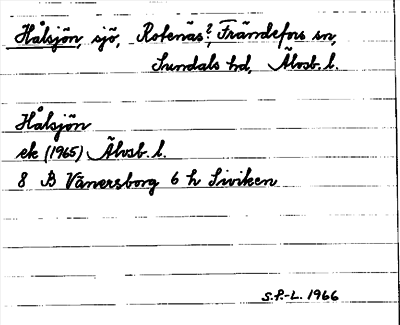 Hålsjön, sjö, Rotenäs?, Frändefors sn,
Sundals hd, Älvsb. l.
Hålsjön
ek (1965) Älvsb. l.
8 B Vänersborg 6 h Siviken
S.P.-L. 1966